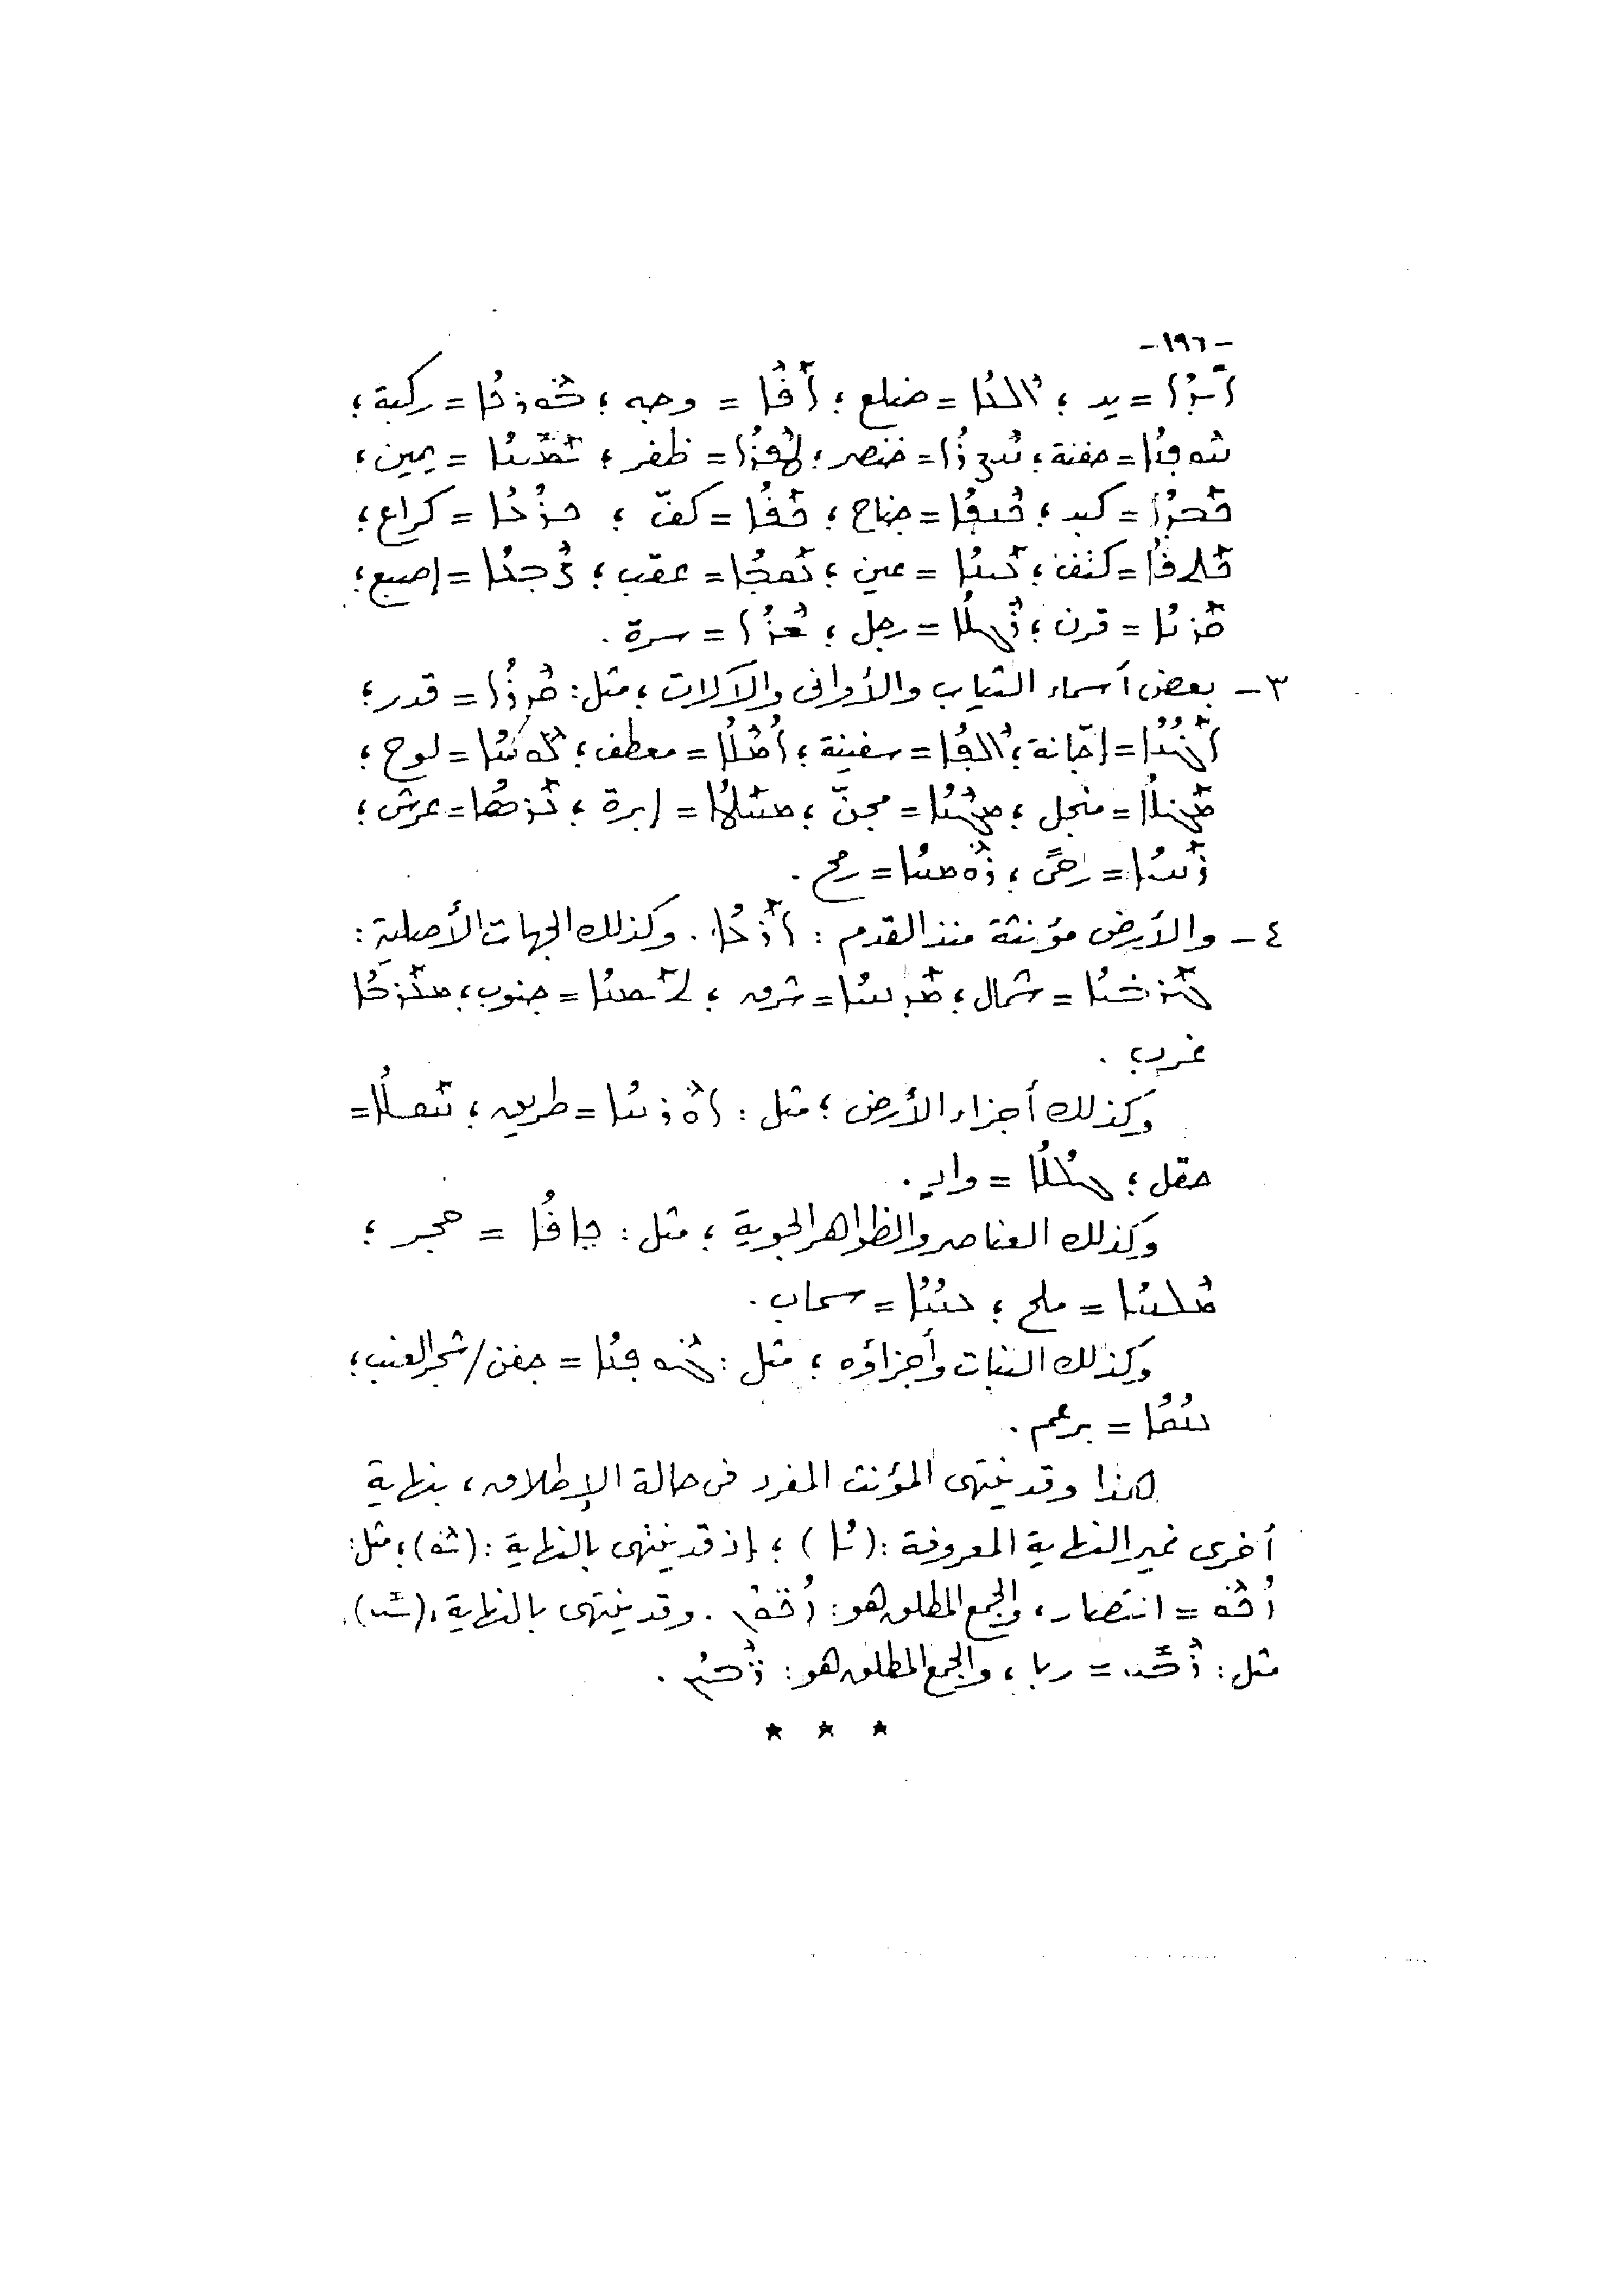 -١٩٦-
ܐܝܕܐ = يد ؛ ܐܠܥܐ = ضلع ؛ ܐܦܐ = وجه ؛ ܒܘܪܟܐ = ركبة ؛
ܚܘܦܢܐ = حفنة ؛ = خنصر ؛ ܛܦܪܐ = ظفر ؛ ܝܡܝܢܐ = يمين ؛
ܟܒܕܐ = كبد ؛ ܟܢܦܐ = جناح ؛ ܟܦܐ = كفّ ؛ ܟܪܥܐ = كراع ؛
ܟܬܦܐ = كتف ؛ ܥܝܢܐ = عين ؛ ܥܩܒܐ = عقب ؛ ܨܒܥܐ = إصبع ؛
ܩܪܢܐ = قرن ؛ ܪܓܠܐ = رجل ؛ ܫܪܐ = سرة .
٣- بعض أسماء الثياب والأوانى والآلات ؛ مثل : ܩܕܪܐ = قدر ؛
ܐܓܢܐ = إجّانة ؛ ܐܠܦܐ = سفينة ؛ = معطف ؛ ܠܘܚܐ = لوح ؛
ܡܓܠܐ = منجل ؛ ܡܓܢܐ = مجنّ ؛ ܡܚܛܐ = إبرة ؛ ܥܪܣܐ = عرش ؛
ܪܚܝܐ = رحىً ؛ ܪܘܡܚܐ = رمح .
٤- والأرض مؤنثة منذ القدم : ܐܪܥܐ . وكذلك الجهات الأصلية :
ܓܪܒܝܐ = شمال ؛ ܡܕܢܚܐ = شرق ؛ ܬܝܡܢܐ = جنوب ؛ ܡܥܪܒܐ
غرب .
وكذلك أجزاء الأرض ؛ مثل : ܐܘܪܚܐ = طريق ؛ ܚܩܠܐ =
حقل ؛ = وادٍ .
وكذلك العناصر والظواهر الجوية ؛ مثل : ܟܐܦܐ = حجر ؛
ܡܠܚܐ = ملح ؛ ܥܢܢܐ = سحاب .
وكذلك النبات وأجزاؤه ؛ مثل : ܓܘܦܢܐ = جفن / شجر العنب ؛
= برعم .
هذا وقد ينتهى المؤنث المفرد فى حالة الإطلاق ، بنهاية
أخرى غير النهاية المعروفة : ( ܐ ) ؛ إذ قد ينتهى بالنهاية : ( ܘ ) ؛ مثل :
ܙܟܘ = انتصار ، والجمع المطلق هو : ܙܟܘܢ . وقد ينتهى بالنهاية : ( ܝ ) .
مثل : ܪܒܝ = ربا ، والجمع المطلق هو : ܪܒܝܢ .
* * *